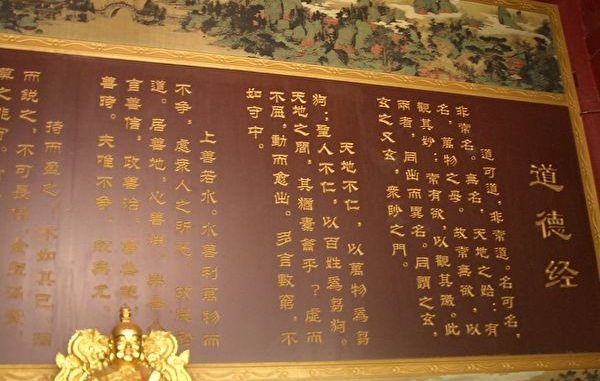 道德经
道可道，非常道。名可名，
非常名。無名，天地之始；有
名，萬物之母。故常無欲，以
觀其妙；常有欲，以觀其徼。此
兩者，同出而異名。同謂之玄，
玄之又玄，衆眇之門。
天地不仁，以萬物爲芻
狗；聖人不仁，以百姓爲芻狗。
天地之間，其猶橐籥乎？虛而
不屈，動而愈出。多言數窮，不
如守中。
上善若水。水善利萬物而
不爭，處衆人之所
道。居善地，心善
言善信，政善治，
善時。夫唯不爭，故無尤。
持而盈之，不如其已
而銳之，不可長保
之